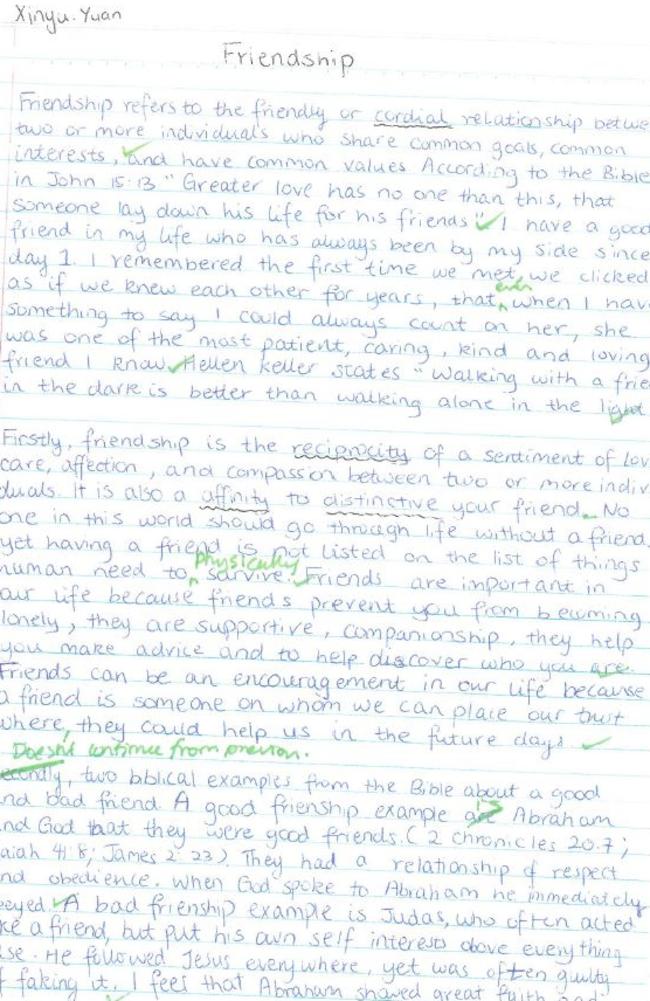 Xinyu. Yuan
Friendship
Friendship refers to the friendly or cordial relationship betwe
two or more individuals who share common goals, common
interests, and have common values According to the Bible
in John 15:13 " Greater love has no one than this, that
someone lay down his life for his friends" I have a good
friend in my life who has always been by my side since
day 1. I remembered the first time we met, we clicked
even
as if we knew each other for years, that when I hav
something to say I could always count on her, she
was one of the most patient, caring, kind and loving
friend I know. Hellen keller states " Walking with a frie
in the dark is better than walking alone in the light
Firstly, friendship is the reciprocity of a sentiment of lov
care, affection, and compassion between two or more indiv
duals. It is also a affinity to distinctive your friend. No
one in this world should go through life without a friend.
yet having a friend is not listed on the list of things
physically
human need to survive. Friends are important in
our life because friends prevent you from becoming
lonely, they are supportive, companionship, they help
you make advice and to help discover who you are.
Friends can be an encouragement in our life because
a friend is someone on whom we can place our trust
where, they could help us in the future days.
Doesn't continue from previous.
econdly, two biblical examples from the Bible about a good
nd bad friend. A good frienship example are is Abraham
nd God that they were good friends. ( 2 chronicles 20:7;
aiah 41:8; James 2: 23). They had a relationship of respect
nd obedience. When God spoke to Abraham he immediately
beyed. A bad frienship example is Judas, who often acted
ke a friend, but put his own self interests above everything
lse. He followed Jesus everywhere, yet was often guilty
f faking it. I feel that Abraham showed great faith and